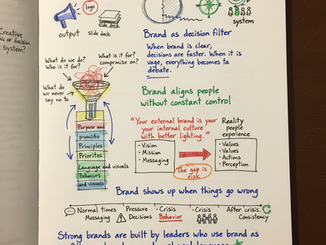 Creative
or decision
system?
logo
output
slide deck
system
Brand as decision filter
When brand is clear,
decisions are faster. When it is
vage, everything becomes to
debate.
What do we do?
Who is it for?
What is it for?
compromise on?
What do we
never
say no to
Brand aligns people
without constant control
"Your external brand is your
your internal culture
with better lighting."
Reality
people
experience
Messaging
- Vision
- Mission
- Messaging
The gap is
risk
- Values
- Values
- Actions
- Perception
Purpose and
Principles
Priorites
Language and visuals
Behaviors
and visuals
Brand shows up when things go wrong
Normal times
Messaging
Pressure
Decisions
· Crisis
Behavior
· Crisis
After crisis
Consistency
Strong brands are built by leaders who use brand as